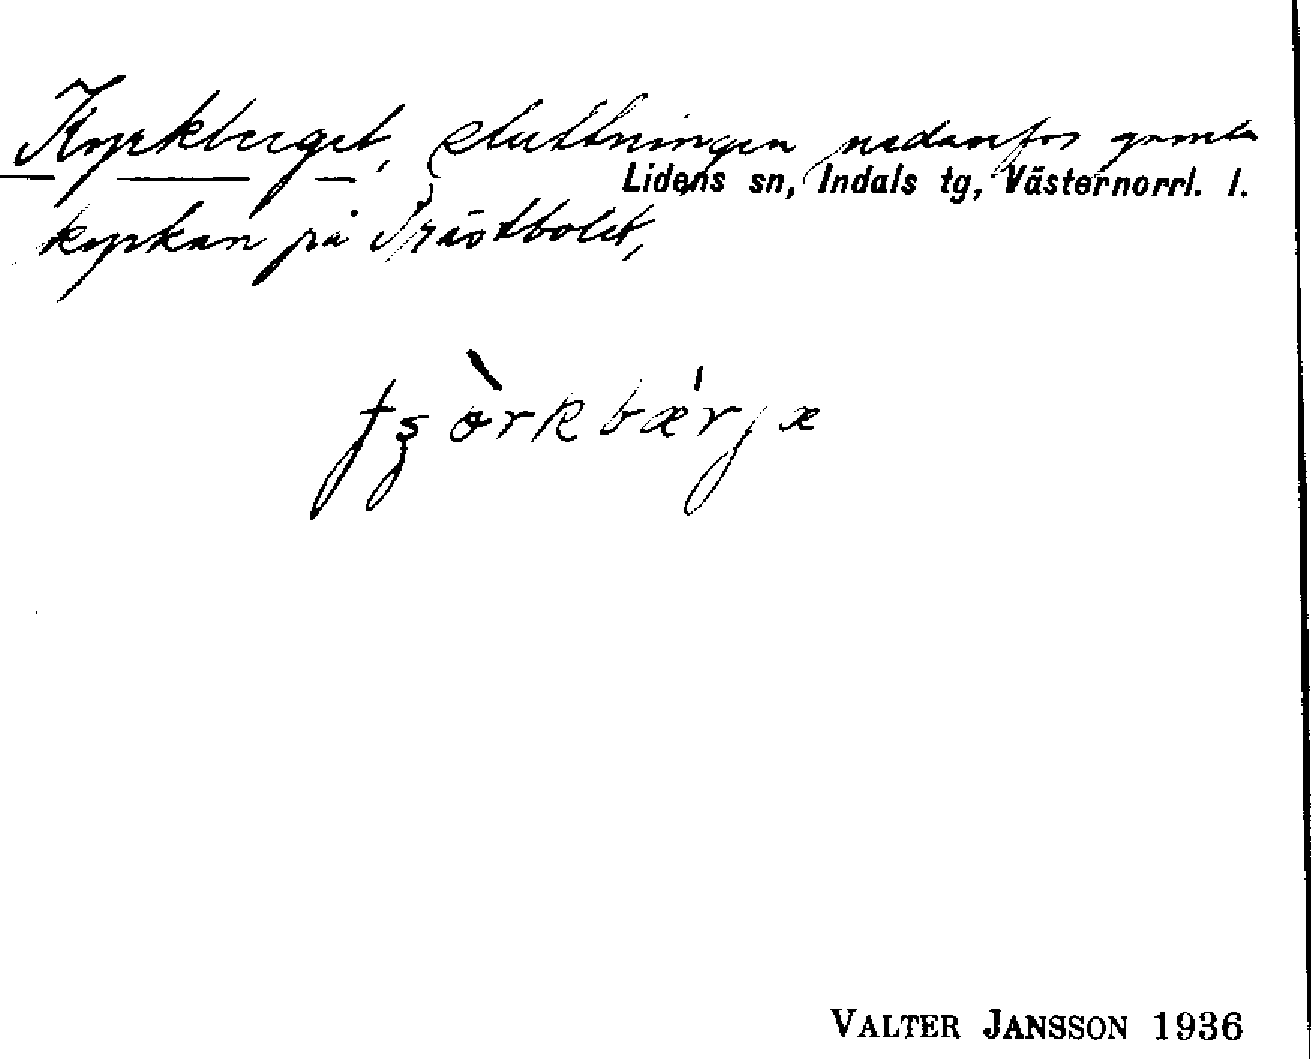 Kyrkberget, sluttningen nedanför gamla
Lidens sn, Indals tg, Västernorrl. l.
kyrkan på Prästbolet,
tʂòrkbǽrjæ
VALTER JANSSON 1936